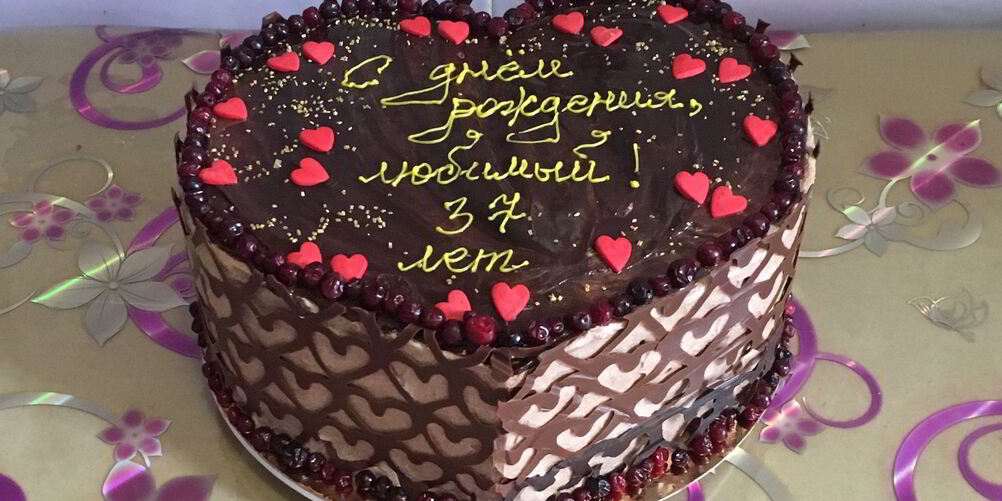 С днём
рождения,
любимый!
37
лет